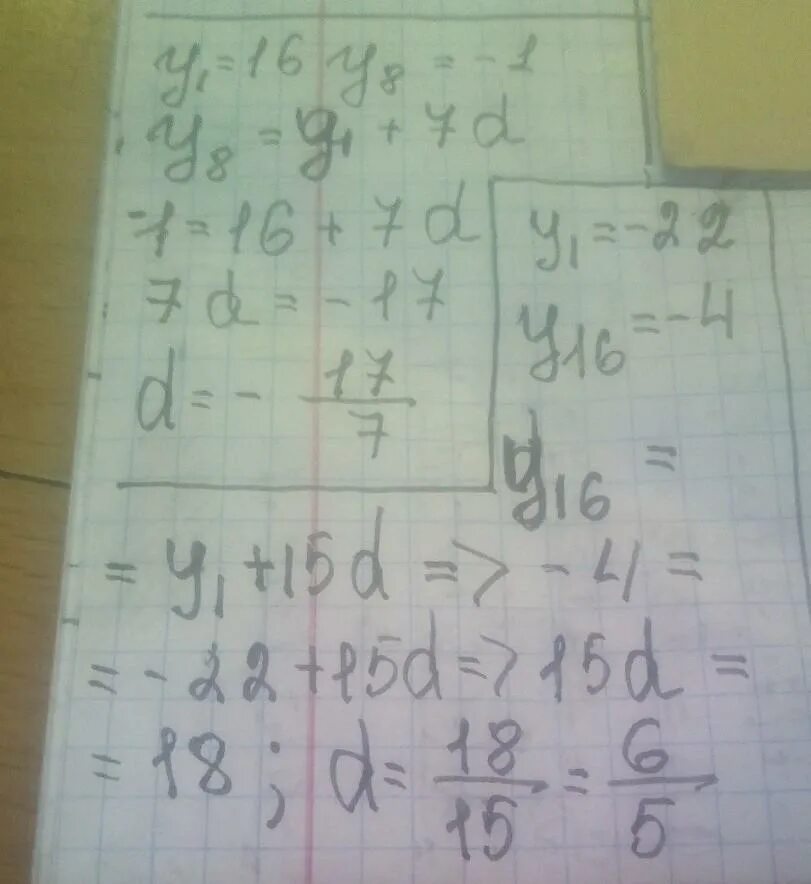 y₁ = 16 y₈ = -1
y₈ = y₁ + 7d
-1 = 16 + 7d
7d = -17
d = - 17/7
y₁ = -22
y₁₆ = -4
y₁₆ =
= y₁ + 15d => -4 =
= -22 + 15d => 15d =
= 18; d = 18/15 = 6/5